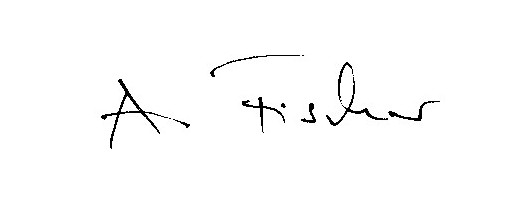 A Fischer